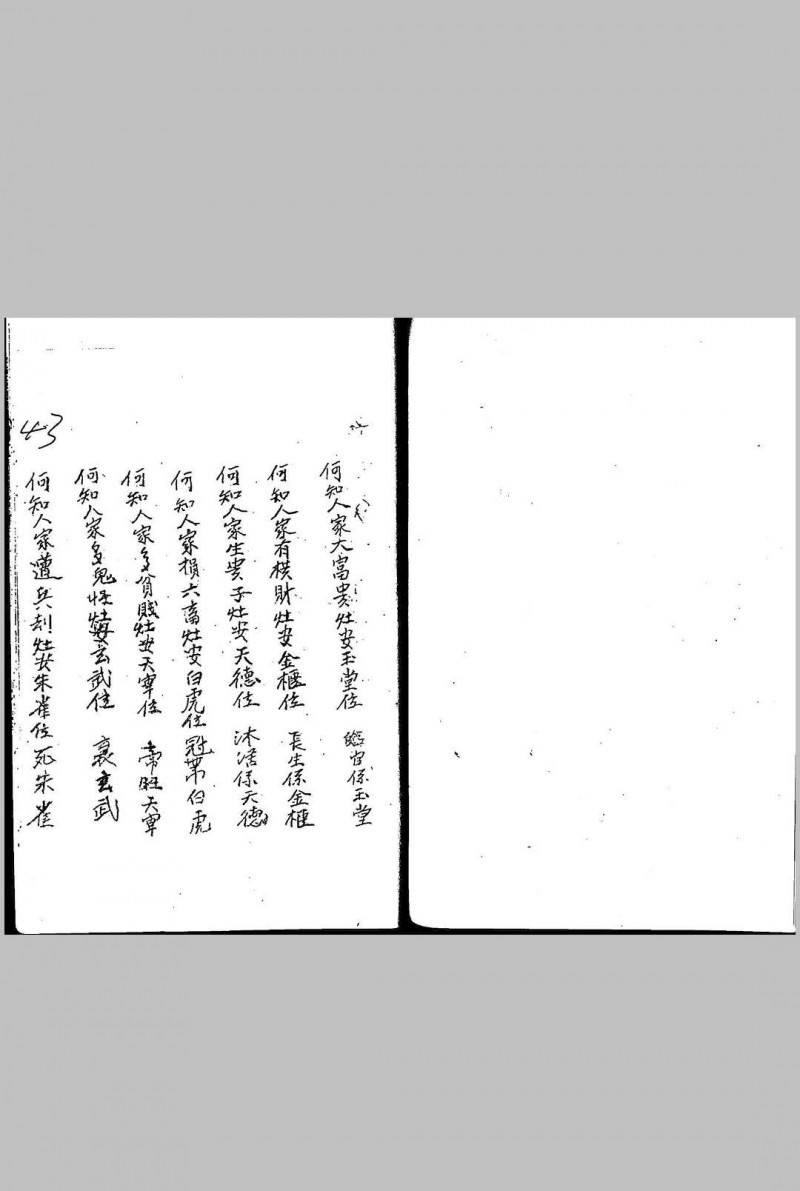 何知人家大富貴灶安玉堂位 臨官係玉堂
何知人家有横財灶安金櫃位 長生係金櫃
何知人家生貴子灶安天德位 沐浴係天德
何知人家損六畜灶安白虎位 冠帶白虎
何知人家多貧賤灶安天牢位 帝旺天牢
何知人家多鬼怪灶安玄武位 衰玄武
何知人家遭兵刦灶安朱雀位 死朱雀
43